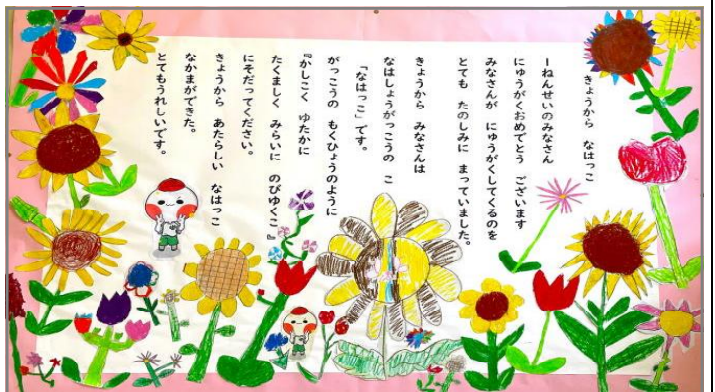 きょうから なはっこ
一ねんせいのみなさん
にゅうがくおめでとう ございます
みなさんが にゅうがくしてくるのを
とても たのしみに まっていました。
きょうから みなさんは
なはしょうがっこうの こ
「なはっこ」です。
がっこうの もくひょうのように
『かしこく ゆたかに
たくましく みらいに のびゆくこ』
にそだってください。
きょうから あたらしい なはっこ
なかまができた。
とてもうれしいです。